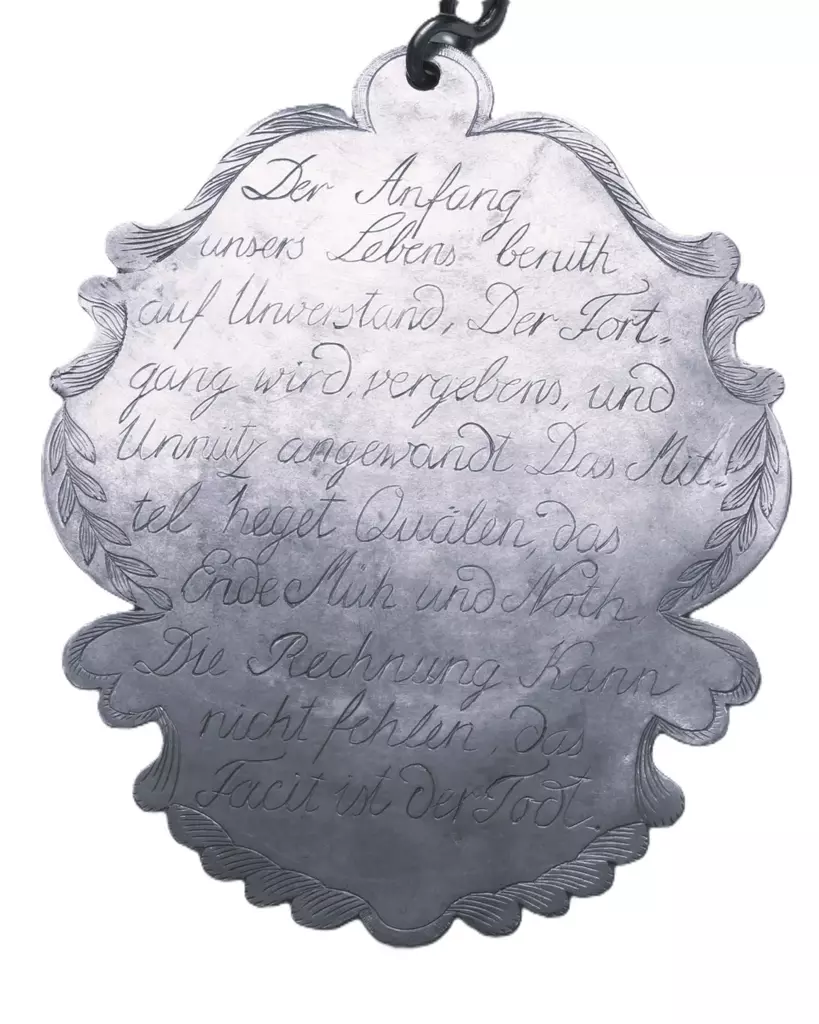 Der Anfang
unsers Lebens beruth
auf Unverstand, Der Fort=
gang wird, vergebens, und
Unnütz angewandt Das Mit=
tel heget Quälen, das
Ende Müh und Noth,
Die Rechnung Kann
nicht fehlen, das
Facit ist der Todt.